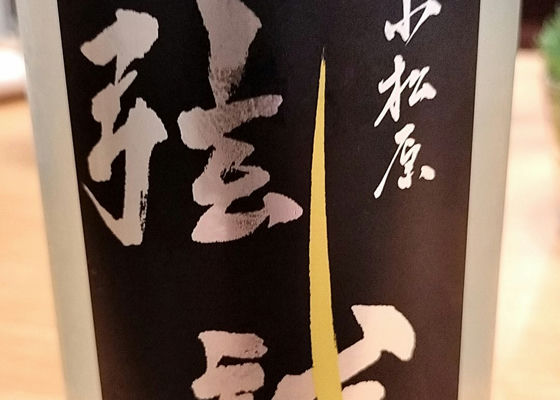 小松原
弦